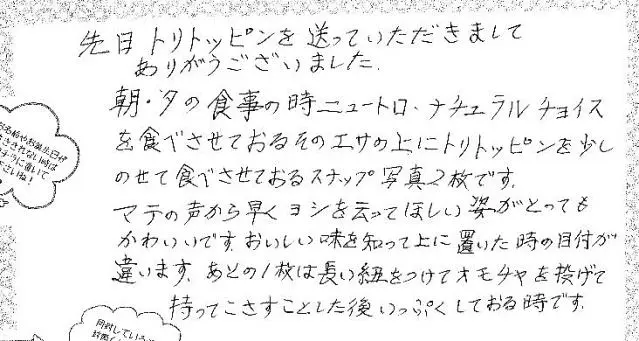 先日トリトッピンを送っていただきまして
ありがうございました.
朝・夕の食事の時ニュートロ・ナチュラルチョイス
を食べさせておるそのエサの上にトリトッピンを少し
のせて食べさせておるスナップ写真2枚です.
マテの声から早くヨシを云ってほしい姿がとっても
かわいいです.おいしい味を知って上に置いた時の目付が
違います.あとの1枚は長い紐をつけてオモチャを投げて
持ってこさすことした後いっぷくしておる時です.